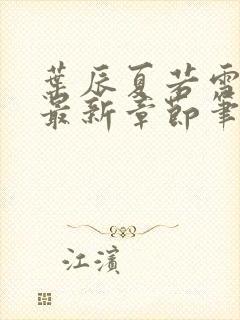 葉辰夏若雪
最新章節筆
江濱